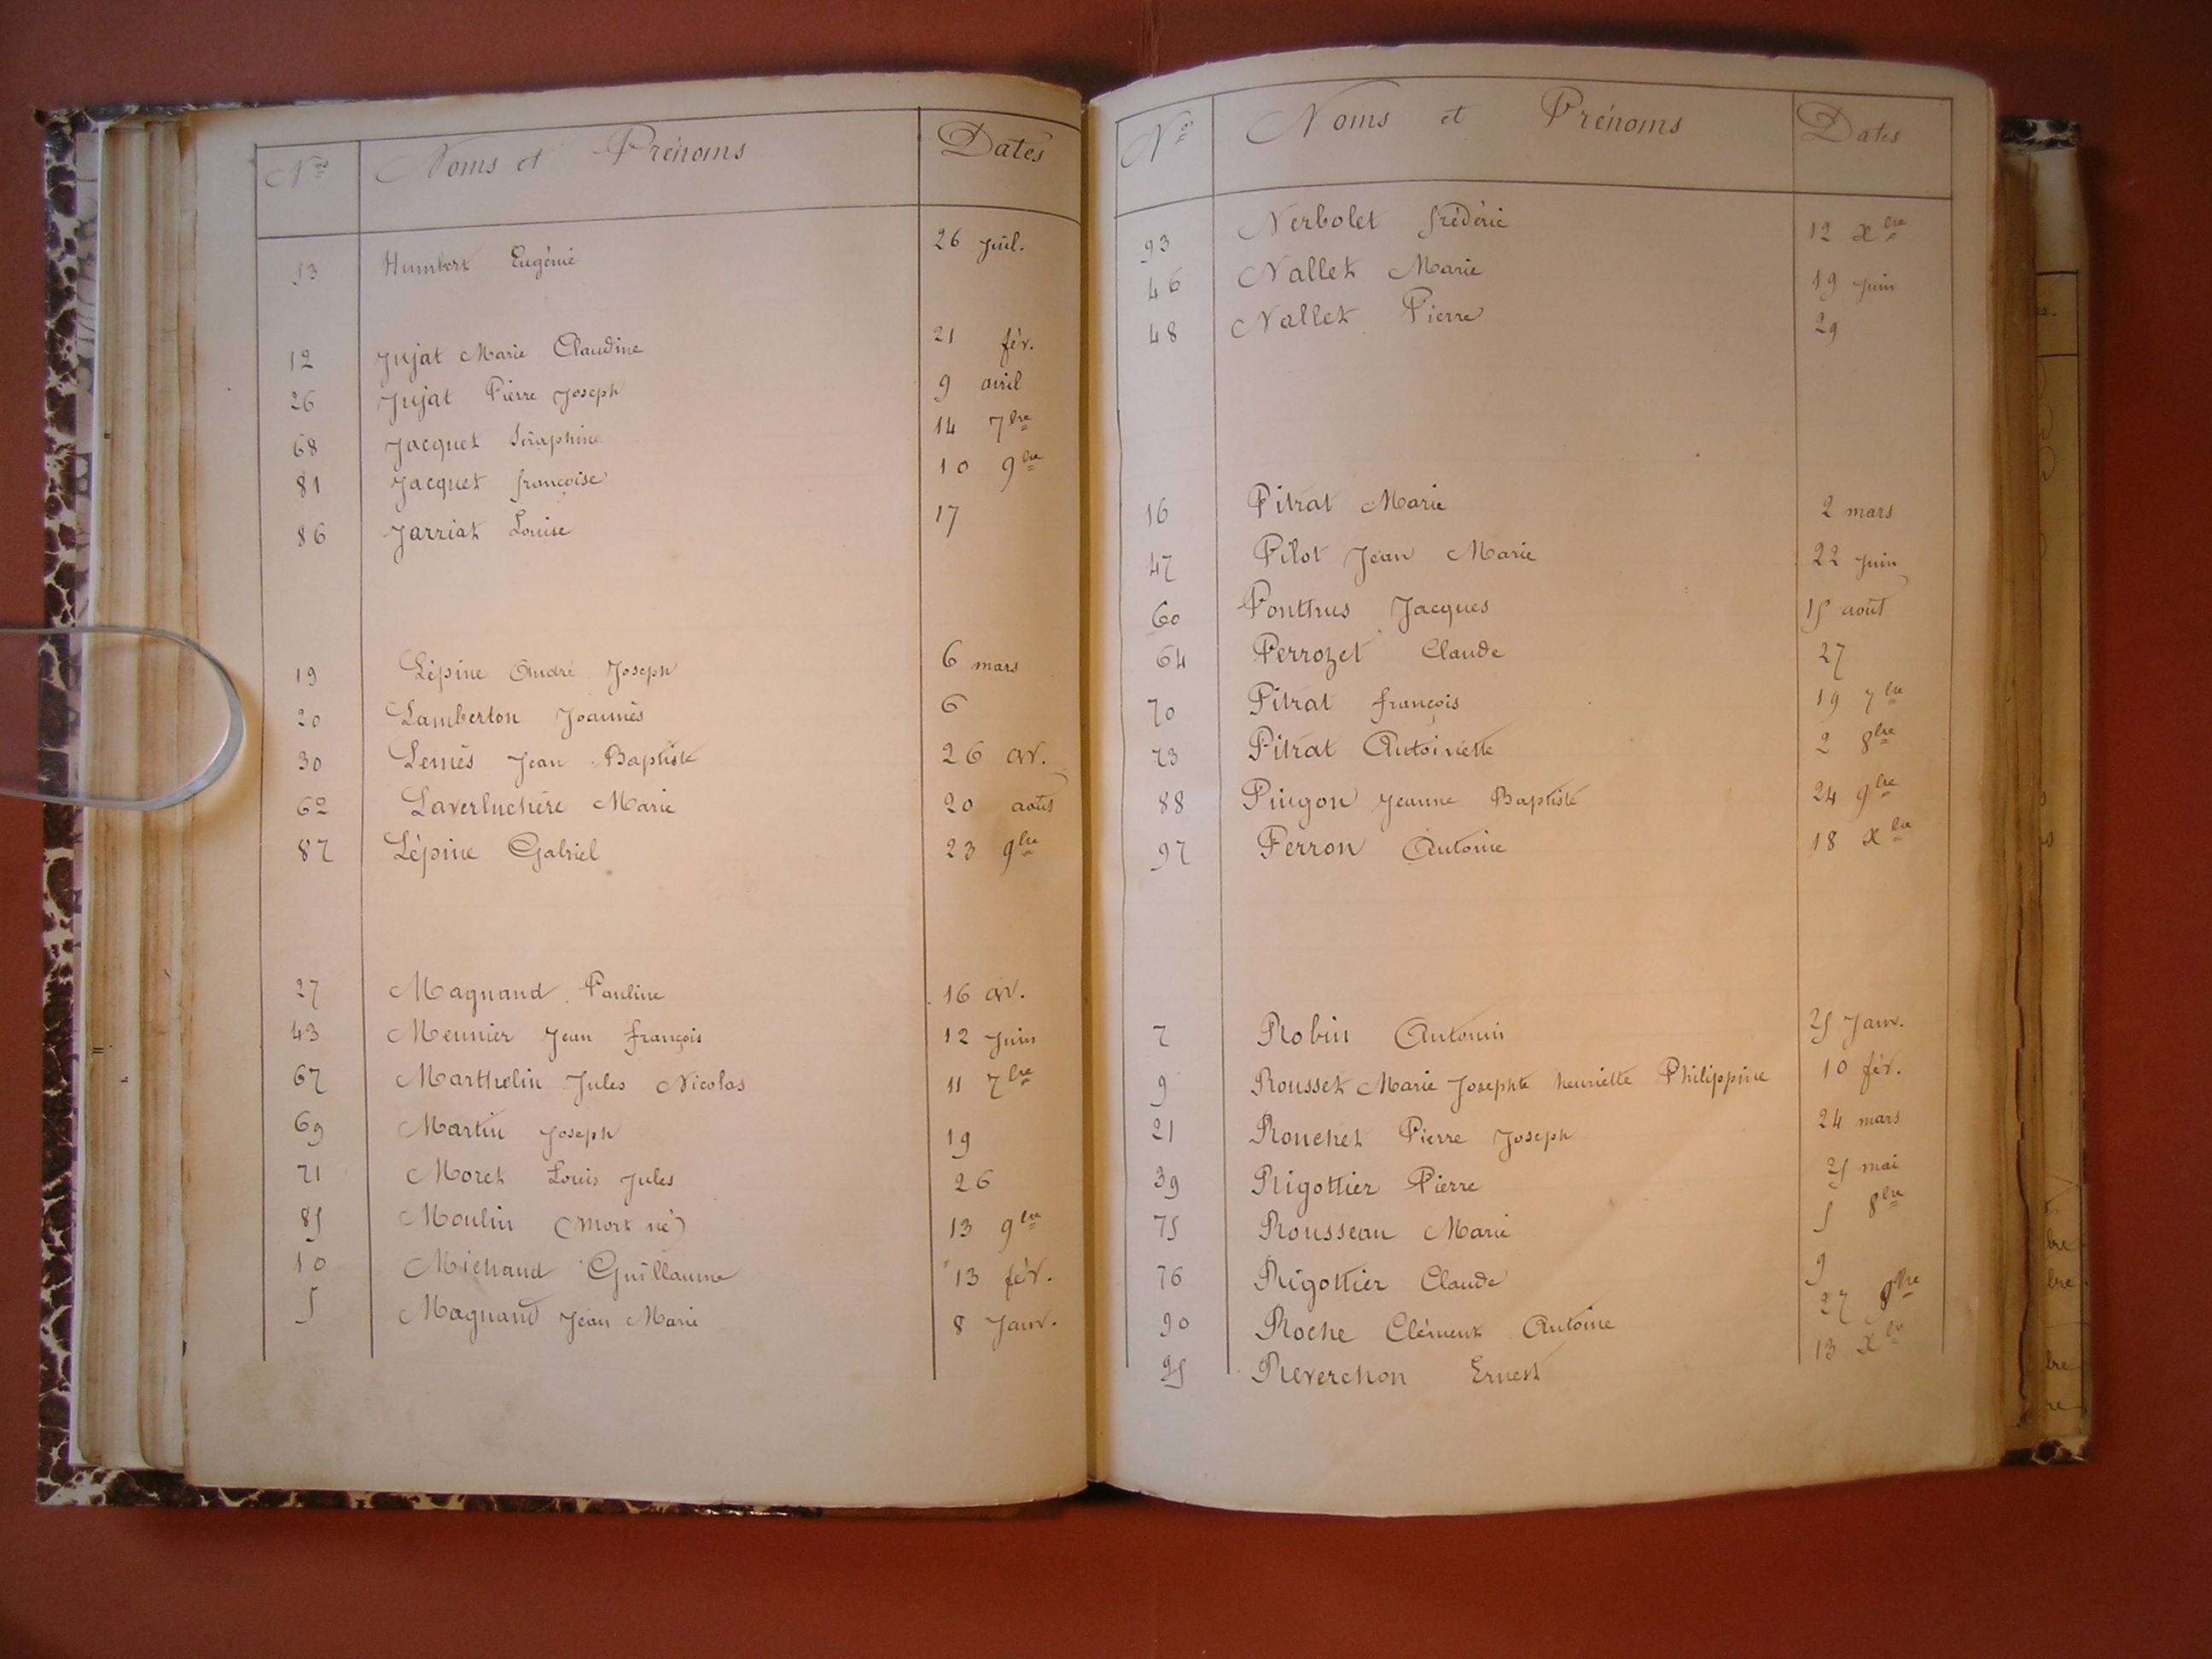 Nos Noms et Prénoms Dates
53 Humbert Eugénie 26 juil.
12 Jujat Marie Claudine 21 fév.
26 Jujat Pierre Joseph 9 avril
68 Jacquet Séraphine 14 7bre
81 Jacquet françoise 10 9bre
86 Jarriat Louise 17
19 Lépine André Joseph 6 mars
20 Lamberton Joannès 6
30 Jean Baptiste 26 av.
62 Laverluchère Marie 20 août
87 Lépine Gabriel 23 9bre
27 Magnand Pauline 16 av.
43 Meunier Jean françois 12 Juin
67 Marthelin Jules Nicolas 11 7bre
69 Martin Joseph 19
71 Moret Louis Jules 26
85 Moulin (mort né) 13 9bre
10 Michaud Guillaume 13 fév.
5 Magnand Jean Marie 8 Janv.
Nos Noms et Prénoms Dates
93 Nerbolet frédéric 12 xbre
46 Nallet Marie 19 juin
48 Nallet Pierre 29
16 Pitrat Marie 2 mars
47 Pilot Jean Marie 22 juin
60 Ponthus Jacques 15 août
64 Perrozet Claude 27
70 Pitrat françois 19 7bre
73 Pitrat Antoinette 2 8bre
88 Jeanne Baptiste 24 9bre
97 Perron Antoine 18 xbre
7 Robin Antonin 25 Janv.
9 Rousset Marie Josephte henriette Philippine 10 fév.
21 Rouchet Pierre Joseph 24 mars
39 Rigottier Pierre 25 mai
75 Rousseau Marie 5 8bre
76 Rigottier Claude 9
90 Roche Clément Antoine 27 9bre
95 Reverchon Ernest 13 xbre